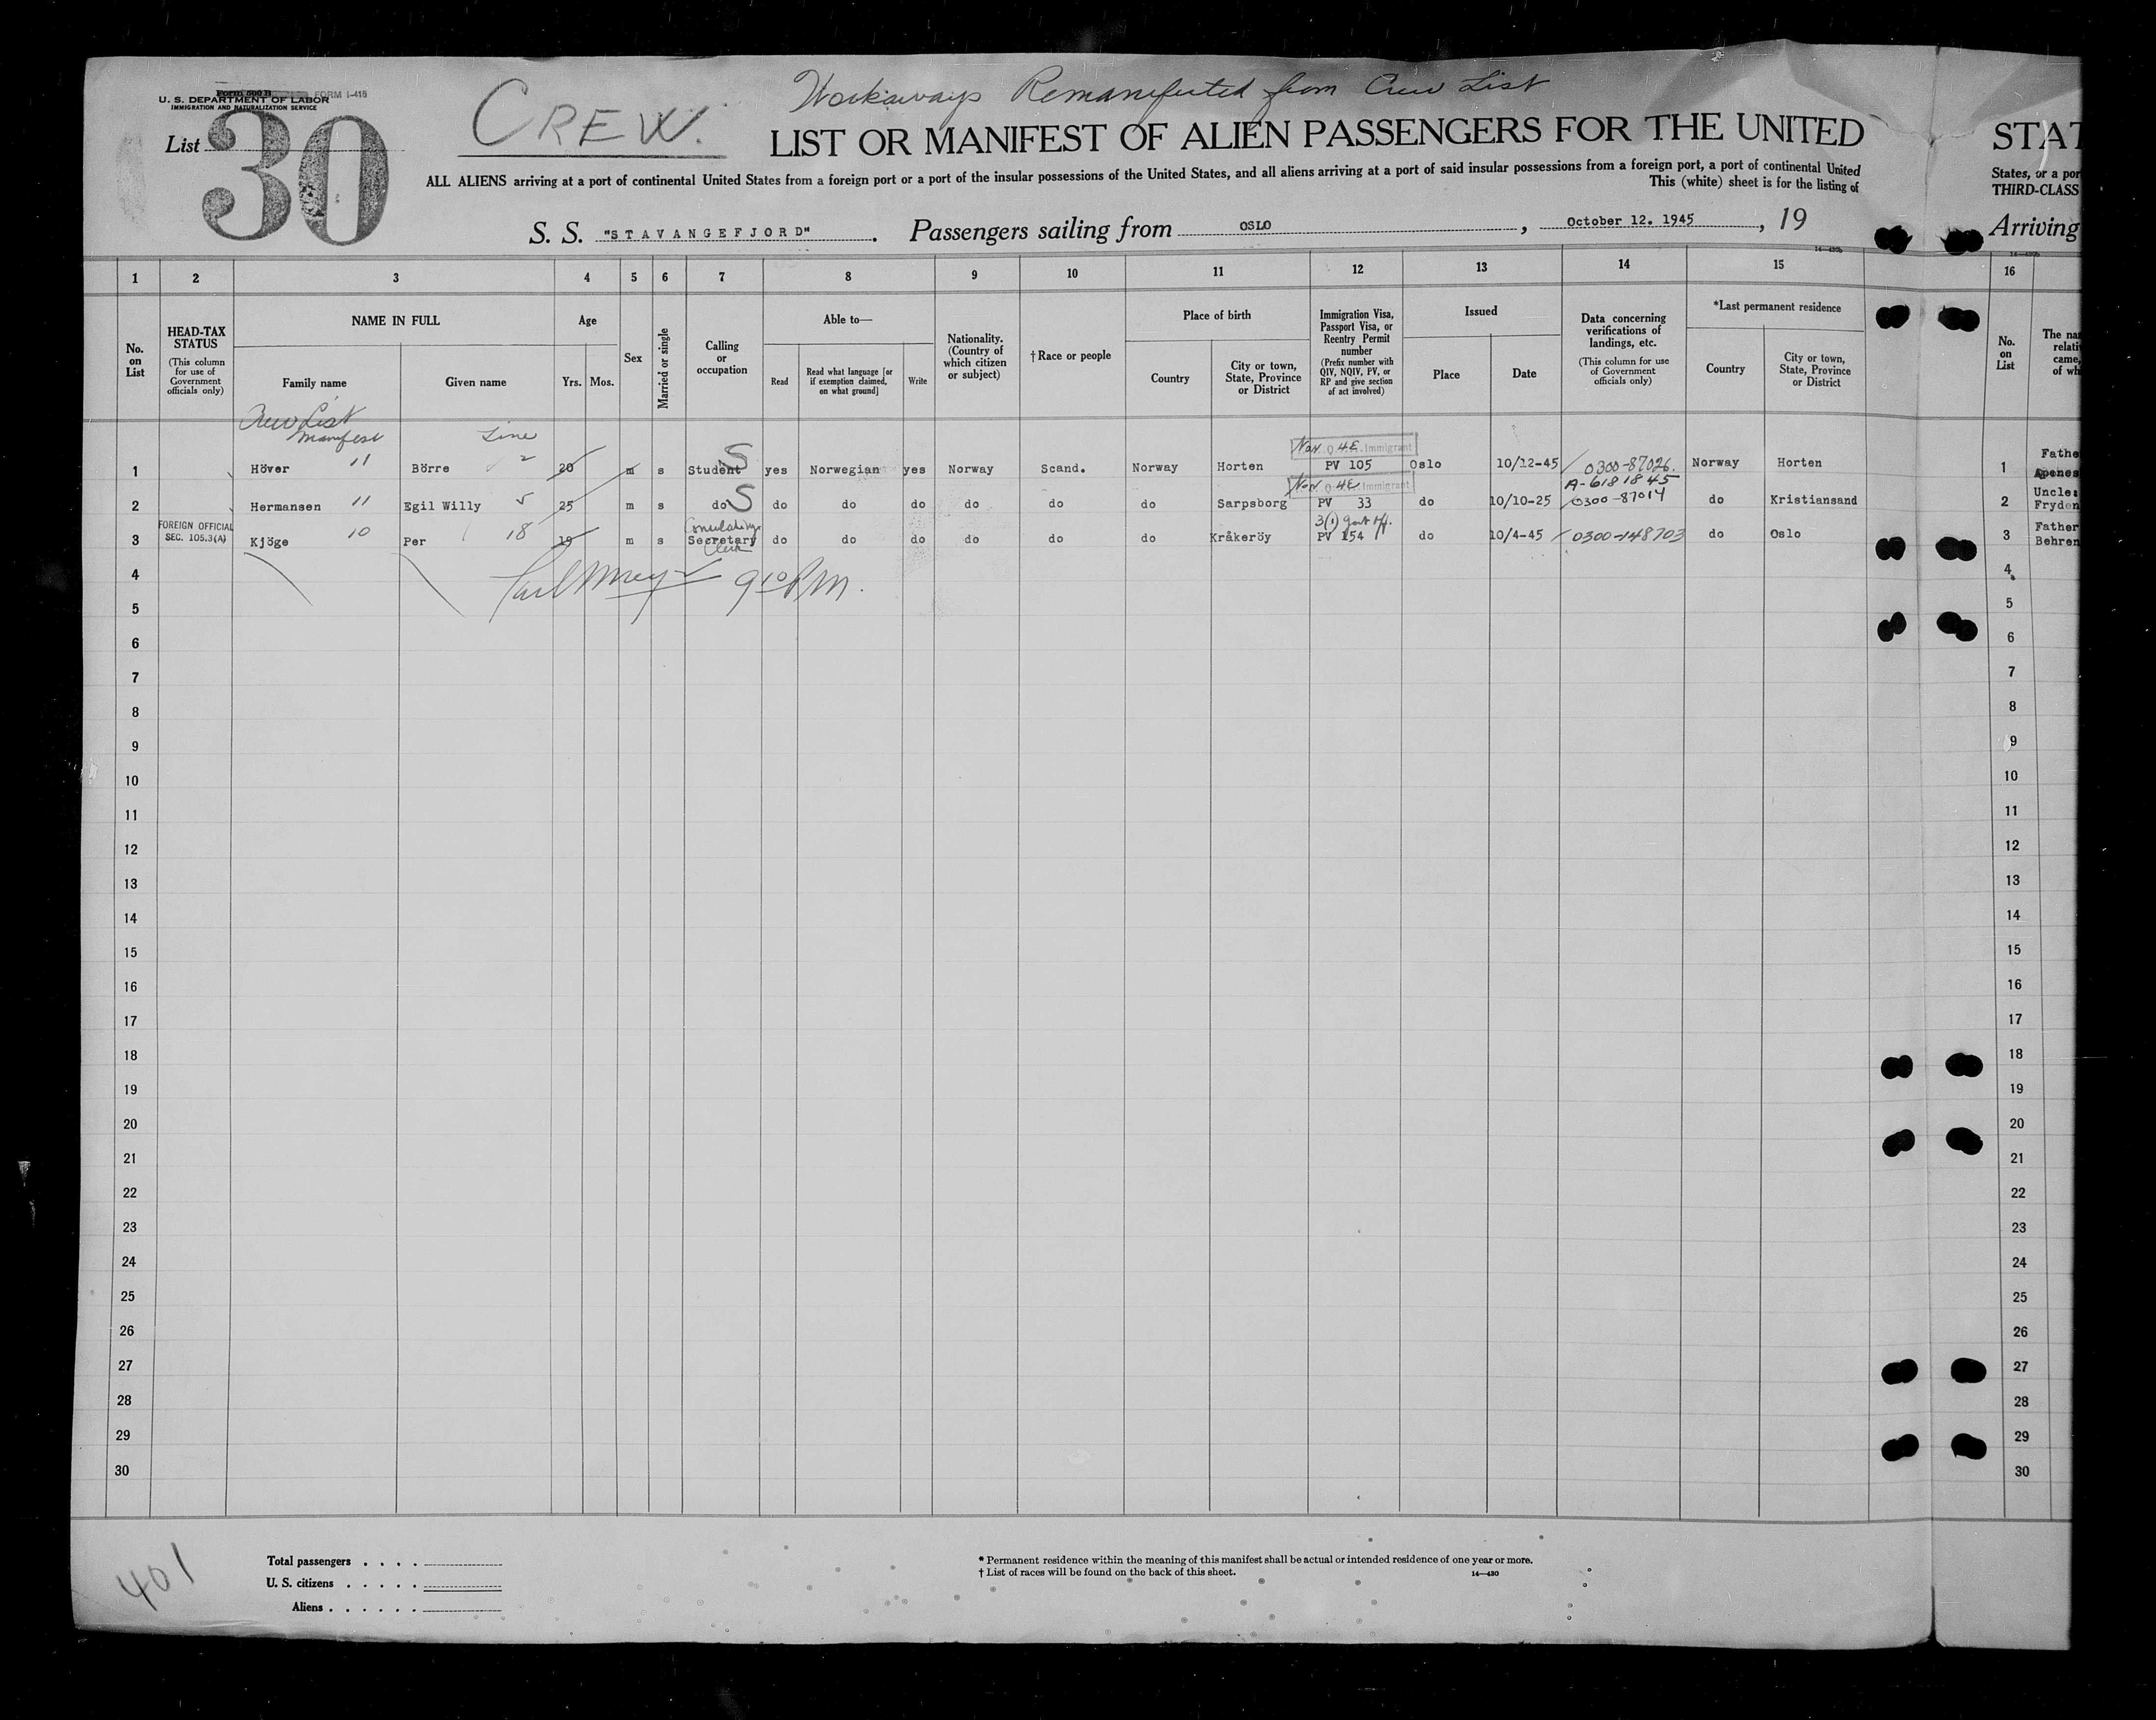 Form 500 B FORM I-415
U. S. DEPARTMENT OF LABOR
IMMIGRATION AND NATURALIZATION SERVICE
List 30
CREW.
Workaways Remanifested from Crew List
LIST OR MANIFEST OF ALIEN PASSENGERS FOR THE UNITED
ALL ALIENS arriving at a port of continental United States from a foreign port or a port of the insular possessions of the United States, and all aliens arriving at a port of said insular possessions from a foreign port, a port of continental United
This (white) sheet is for the listing of
S. S. "STAVANGEFJORD". Passengers sailing from OSLO, October 12. 1945, 19
STAT
States, or a por
THIRD-CLASS
Arriving
1 2 3 4 5 6 7 8 9 10 11 12 13 14 15 16
No. on List
HEAD-TAX STATUS
(This column for use of Government officials only)
NAME IN FULL
Family name Given name
Age
Yrs. Mos.
Sex
Married or single
Calling or occupation
Able to—
Read
Read what language [or if exemption claimed, on what ground]
Write
Nationality. (Country of which citizen or subject)
† Race or people
Place of birth
Country
City or town, State, Province or District
Immigration Visa, Passport Visa, or Reentry Permit number
(Prefix number with QIV, NQIV, PV, or RP and give section of act involved)
Issued
Place Date
Data concerning verifications of landings, etc.
(This column for use of Government officials only)
*Last permanent residence
Country
City or town, State, Province or District
No. on List
The nam
relati
came,
of wh
Crew List
Manifest Line
Non Q 4E Immigrant
1 Höver 11 Börre 2 20 m s Student S yes Norwegian yes Norway Scand. Norway Horten PV 105 Oslo 10/12-45 0300-87026. Norway Horten 1 Fathe
Non Q 4E Immigrant A-6181845
2 Hermansen 11 Egil Willy 5 25 m s do S do do do do do do Sarpsborg PV 33 do 10/10-25 0300-87014 do Kristiansand 2 Uncle:
Fryden
FOREIGN OFFICIAL
SEC. 105.3(A)
3 Kjöge 10 Per 18 19 m s Secretary Clerk do do do do do do Kråkeröy PV 154 do 10/4-45 0300-148703 do Oslo 3 Father
Behren
9 10 PM.
4 4
5 5
6 6
7 7
8 8
9 9
10 10
11 11
12 12
13 13
14 14
15 15
16 16
17 17
18 18
19 19
20 20
21 21
22 22
23 23
24 24
25 25
26 26
27 27
28 28
29 29
30 30
401
Total passengers . . . .
U. S. citizens . . . . .
Aliens . . . . . .
* Permanent residence within the meaning of this manifest shall be actual or intended residence of one year or more.
† List of races will be found on the back of this sheet.
14—430